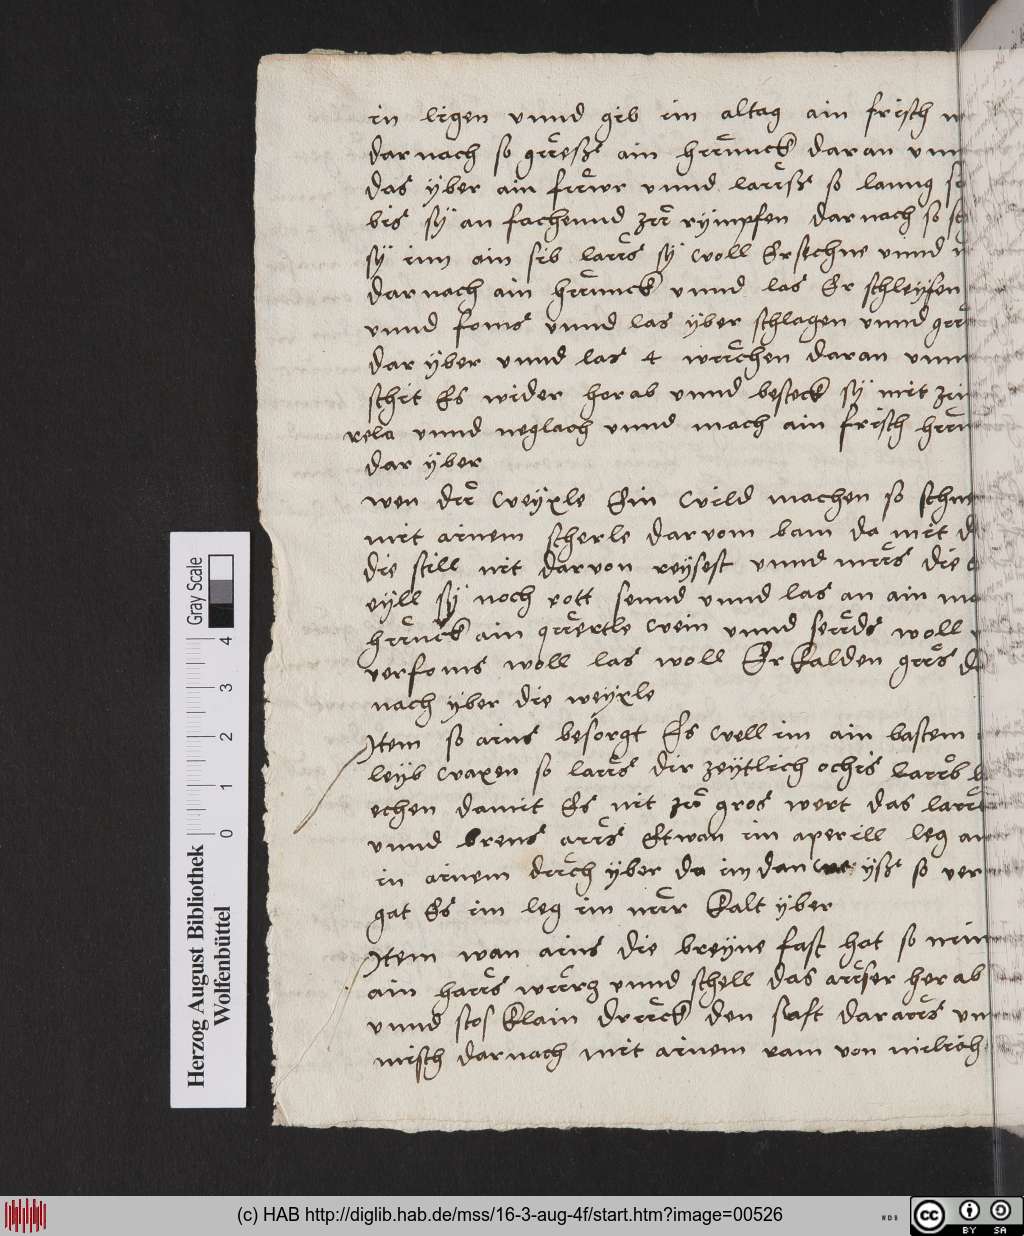 in ligen vnnd gib im altag ain frisch
dar nach so gueß ain hünck dar an vnn
das yber ain fuwr vnnd lauß so lanng
bis sÿ an fachennd zu rympfen dar nach so
sÿ inn ain sib laus sÿ woll Ersechne vnnd
dar nach ain hünck vnnd las Er schleyfen
vnnd foms vnnd las yber schlagen vnnd
dar yber vnnd las 4 wuchen daran vnnd
schit Es wider her ab vnnd besteck sÿ mit
rela vnnd neglach vnnd mach ain frisch
dar yber
wen du weyxle Ein wild machen so
mit ainem scherle dar vom bam da mit
die still nit dar von reysest vnnd mus die
eyll sÿ noch rott sennd vnnd las an ain
hünck ain quertle wein vnnd seuds woll
verfoms woll las woll Er kalden gus
nach yber die weyxle
Item so ains besorgt Es well im ain bastem
leyb waxen so laus dir zeytlich ochis laub
echen damit Es nit zu gros wert das
vnnd brens aus Etwan in aperill leg
in ainem duch yber da im dan we yß so ver
gat Es im leg im nur kalt yber
Item wan ains die breyne fast hat so
ain haus wurz vnnd schell das ausser her ab
vnnd stos klain druck den saft daraus
misch dar nach mit ainem ram von milich
Gray Scale
0 1 2 3 4
Herzog August Bibliothek
Wolfenbüttel
(c) HAB http://diglib.hab.de/mss/16-3-aug-4f/start.htm?image=00526
WDB
cc
BY SA